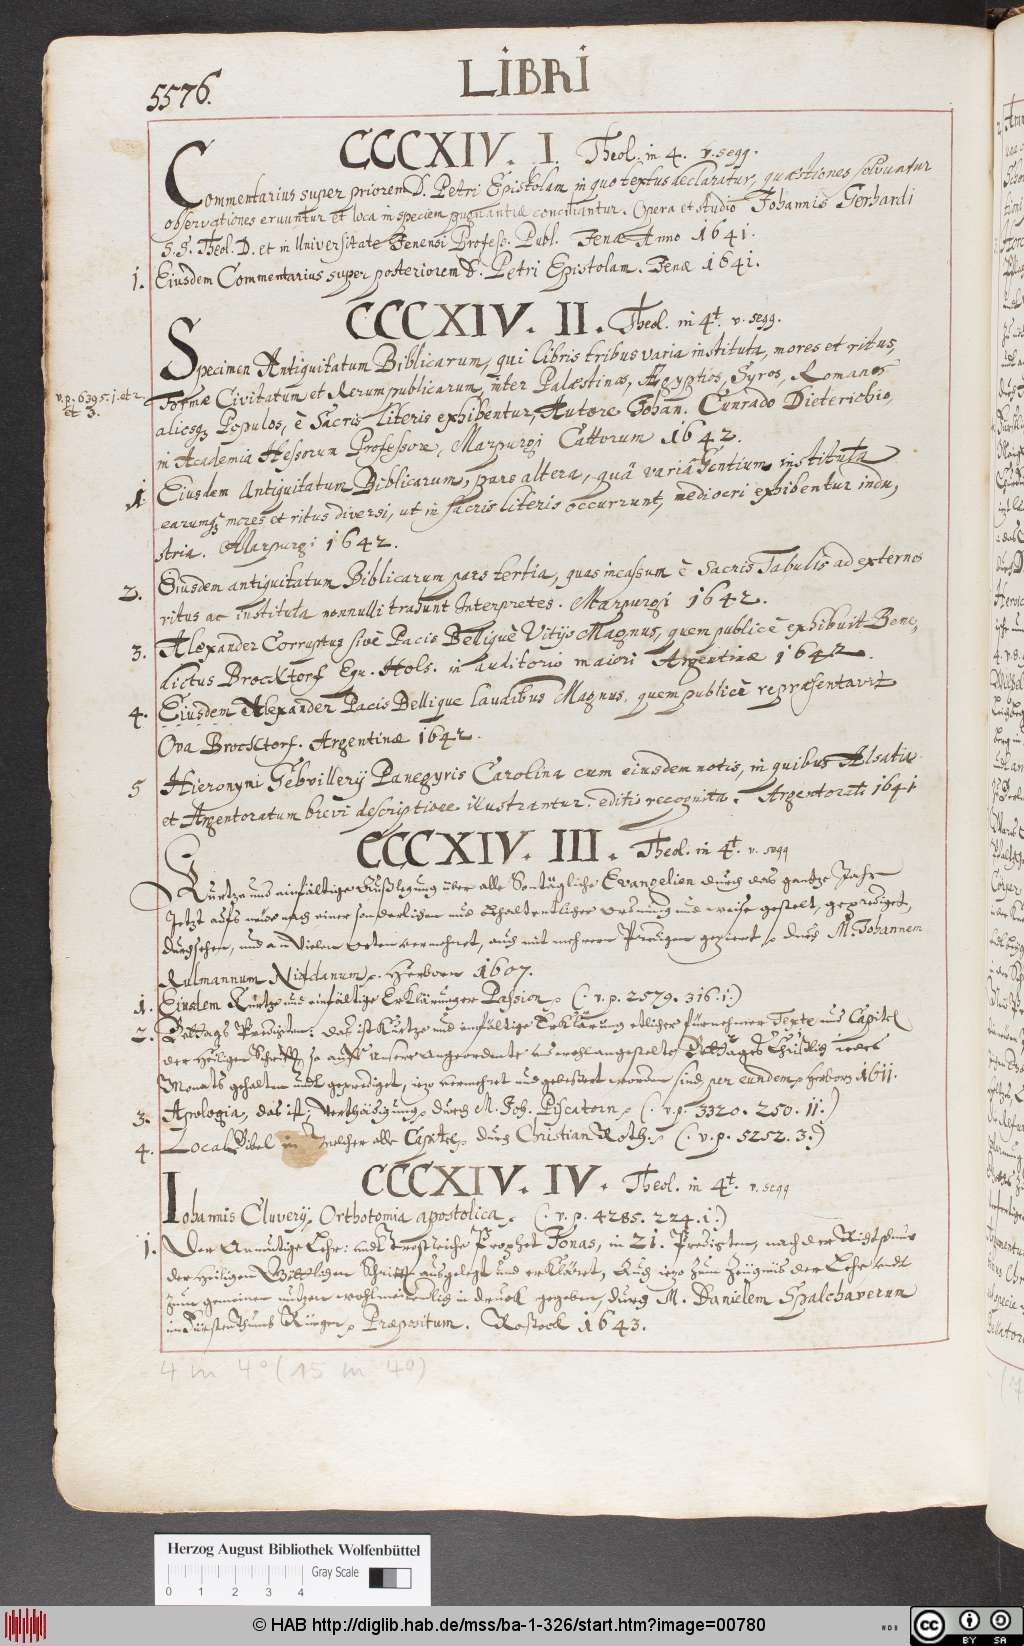 5576.
LIBRI
CCCXIV. I. Theol. in 4. v. segg.
Commentarius super priorem D. Petri Epistolam in quo textus declaratur, quæstiones solvuntur
observationes eruuntur et loca in speciem pugnantia conciliantur. Opera et studio Johannis Gerhardi
S. S. Theol. D. et in Universitate Jenensi Profess. Publ. Jenæ Anno 1641.
1. Eiusdem Commentarius super posteriorem D. Petri Epistolam. Jenæ 1641.
CCCXIV. II. Theol. in 4t. v. segg.
Specimen Antiquitatum Biblicarum, qui libris tribus varia instituta, mores et ritus,
formæ Civitatum et Rerumpublicarum, inter Palæstinos, Ægyptios, Syros, Romanos
v. p. 6395. 1. et 2
et 3.
aliosq Populos, è Sacris Literis exhibentur, Autore Johan. Cunrado Dieterichio,
in Academia Hessorum Professore, Marpurgi Cattorum 1642.
1. Eiusdem Antiquitatum Biblicarum, pars altera, quâ varia Gentium instituta
earumq mores et ritus diversi, ut in sacris literis occurrunt, mediocri exhibentur indu,
stria. Marpurgi 1642.
2. Eiusdem antiquitatum Biblicarum pars tertia, quas incassum è Sacris Tabulis ad externos
ritus ac instituta nonnulli trahunt Interpretes. Marpurgi 1642.
3. Alexander Corruptus sivè Pacis Belliquè Vitijs Magnus, quem publicè exhibuit Bene,
dictus Brockdorf Equ. Hols. in auditorio maiori Argentinæ 1642.
4. Eiusdem Alexander Pacis Bellique laudibus Magnus, quem publicè repræsentavit
Ova Brockdorf. Argentinæ 1642.
5 Hieronymi Gebvillerij Panegyris Carolina cum eiusdem notis, in quibus Alsatia
et Argentoratum brevi descriptione illustrantur. editio recognita. Argentorati 1641
CCCXIV. III. Theol. in 4t. v. segg
Kurtze und einfältige Außlegung über alle Sontägliche Evangelien durch das gantze Jahr
Jetzt aufs neue nach einer sonderlichen und ordnung und weise gestelt, geprediget,
durchsehen, und an vielen orten vermehret, auch mit mehrern Predigen gezieret durch M. Johannem
Rulmannum Niddanum. Herborn 1607.
1. Eiusdem Kurtze und einfältige Erklärunge Passion (. v. p. 2579. 316. 1.)
2. Bettags Predigten: das ist Kurtze und einfältige Erklärung etlicher fürnehmer Texte und Capitel
der Heiligen Schrifft, so auff unsere angeordente und wohlangestelte Bettage Christlich iedes
Monats gehalten und geprediget, iezo vermehret und gebeßert worden sind, per eundem Herborn 1611.
3. Apologia, das ist, Verthädigung durch M. Joh. Piscatorn (. v. p. 3320. 250. 11.)
4. Local Bibel in welcher alle Capitel durch Christian Roth. (. v. p. 5252. 3.)
CCCXIV. IV. Theol. in 4t. v. segg
Iohannis Cluverij Orthotomia apostolica. (. v. p. 4285. 224. 1.)
1. Der Anmutige Lehr: und Trostreiche Prophet Jonas, in 21. Predigten, nach der Richtschnur
der Heiligen Göttlichen Schrifft ausgelegt und erkläret, Auch iezo zum Zeugnis der Lehr, undt
zum gemeinen nutzen wohlmeinendlich in druck gegeben, durch M. Danielem Spalchaverum
im Fürstenthumb Rügen Præpositum. Rostock 1643.
4 in 4° (15 in 4°)
Herzog August Bibliothek Wolfenbüttel
Gray Scale
0 1 2 3 4
© HAB http://diglib.hab.de/mss/ba-1-326/start.htm?image=00780
cc BY SA